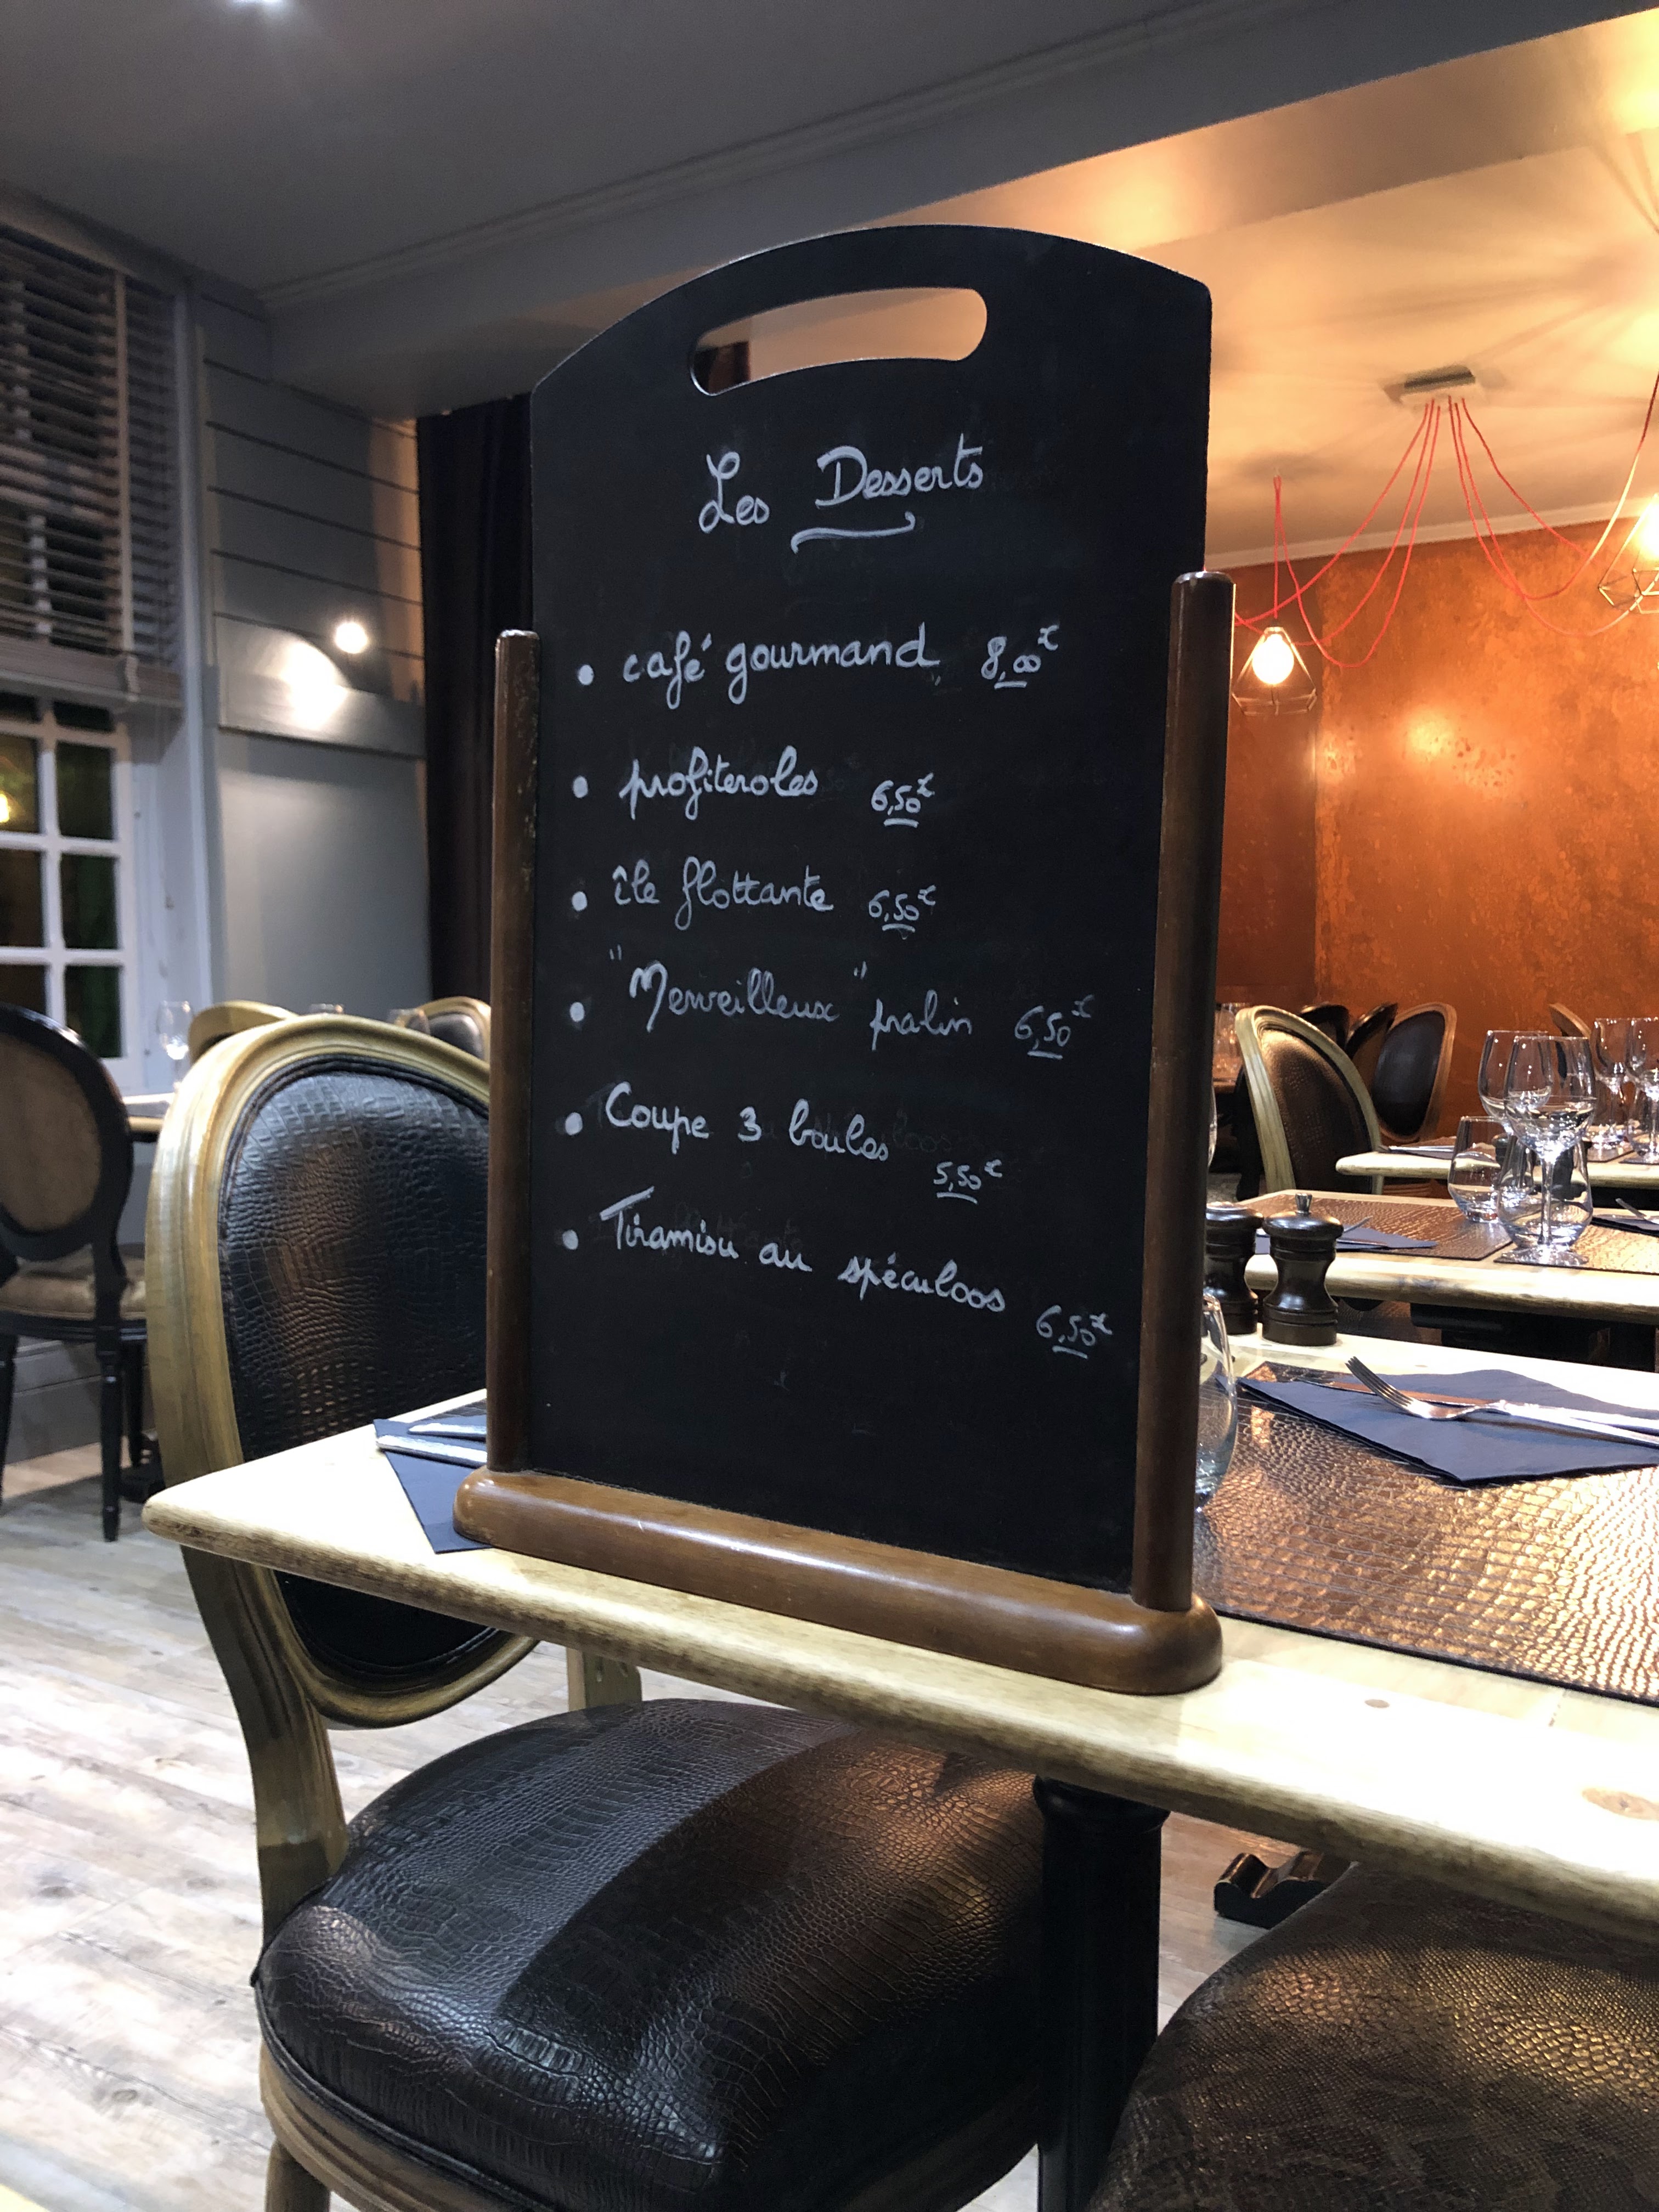 Les Desserts
• café gourmand 8,00€
• profiteroles 6,50€
• île flottante 6,50€
• "Merveilleux" pralin 6,50€
• Coupe 3 boules 5,50€
• Tiramisu au spéculoos 6,50€